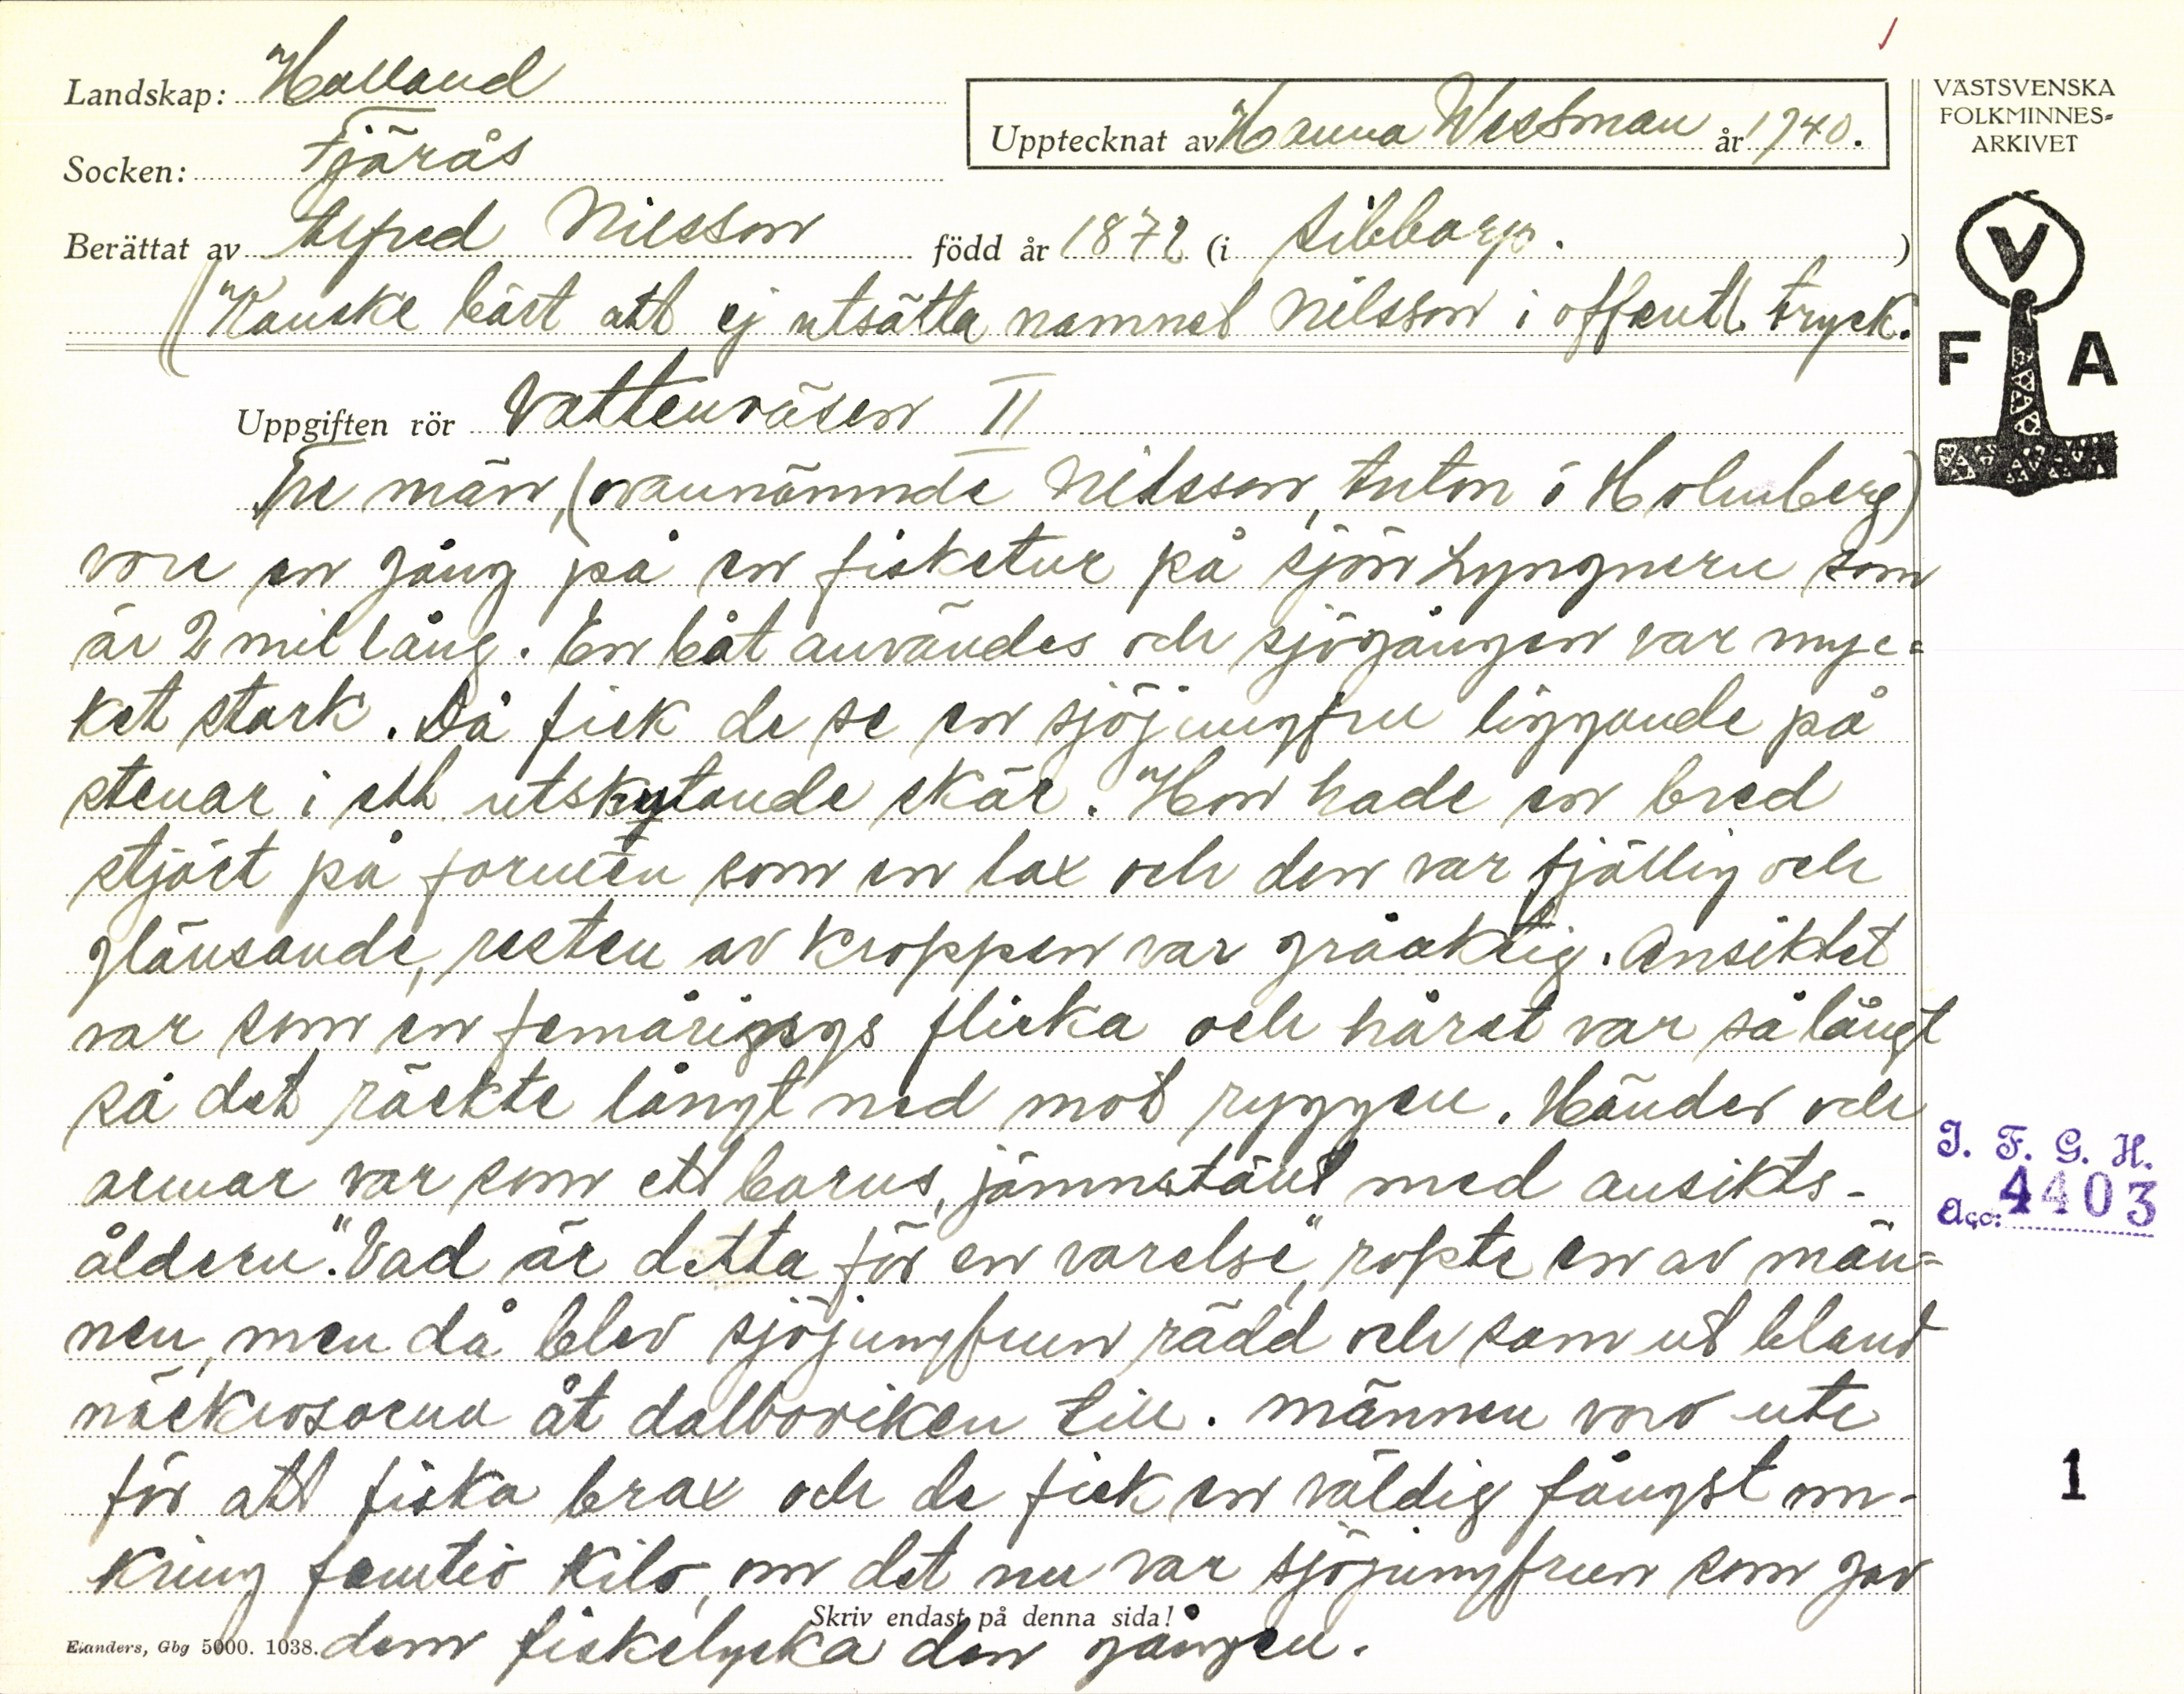 Landskap: Halland
Socken: Fjärås
Upptecknat av Hanna Wessman år 1940.
Berättat av Alfred Nilsson född år 1872 (i Sibbarp. )
(Kanske bäst att ej utsätta namnet Nilsson i offentl. tryck.
Uppgiften rör Vattenväsen II
Tre män, (ovannämnde Nilsson, Anton o Holmberg)
vore en gång på en fisketur på sjön Lyngnern som
är 2 mil lång. En båt användes och sjögången var myc=
ket stark. Då fick de se en sjöjungfru liggande på
stenar i ett utskjutande skär. Hon hade en bred
stjärt på formen som en lax och den var fjällig och
glänsande, resten av kroppen var gråaktig. Ansiktet
var som en femårings flicka och håret var så långt
så det räckte långt ned mot ryggen. Händer och
armar var som ett barns, jämnstänt med ansikts-
åldern. "Vad är detta för en varelse", ropte en av män=
nen, men då blev sjöjungfrun rädd och sam ut bland
näckrosorna åt dalboviken till. Männen voro ute
för att fiska brax och de fick en väldig fångst om-
kring femtio kilo, om det nu var sjöjungfrun som gav
dem fiskelycka den gången.
Skriv endast på denna sida!
Elanders, Gbg 5000. 1038.
VÄSTSVENSKA
FOLKMINNES=
ARKIVET
V
F A
I. F. G. H.
Acc: 4403
1